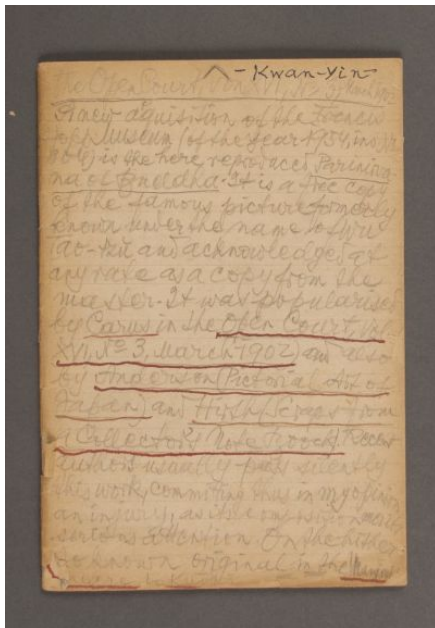 - Kwan-Yin -
the Open Court, Vol. XVI, No 3, March 1902
A new aquisition of the Francis
Hopp Museum (of the year 1954, ins.
note) is the here reproduced Parinirva-
na of Buddha. It is a free copy
of the famous picture formerly
known under the name of Wu
Tao-tzu and acknowledged at
any rate as a copy from the
master. It was popularised
by Carus in the Open Court, Vol.
XVI, No 3, March 1902) and also
by Anderson (Pictorial Art of
Japan) and Hirth (Scraps from
a Collector's Note Book). Recent
authors usually pass silently
this work, committing thus in my opinion
an injury, as its composition
attention. On the hither-
to known original in the